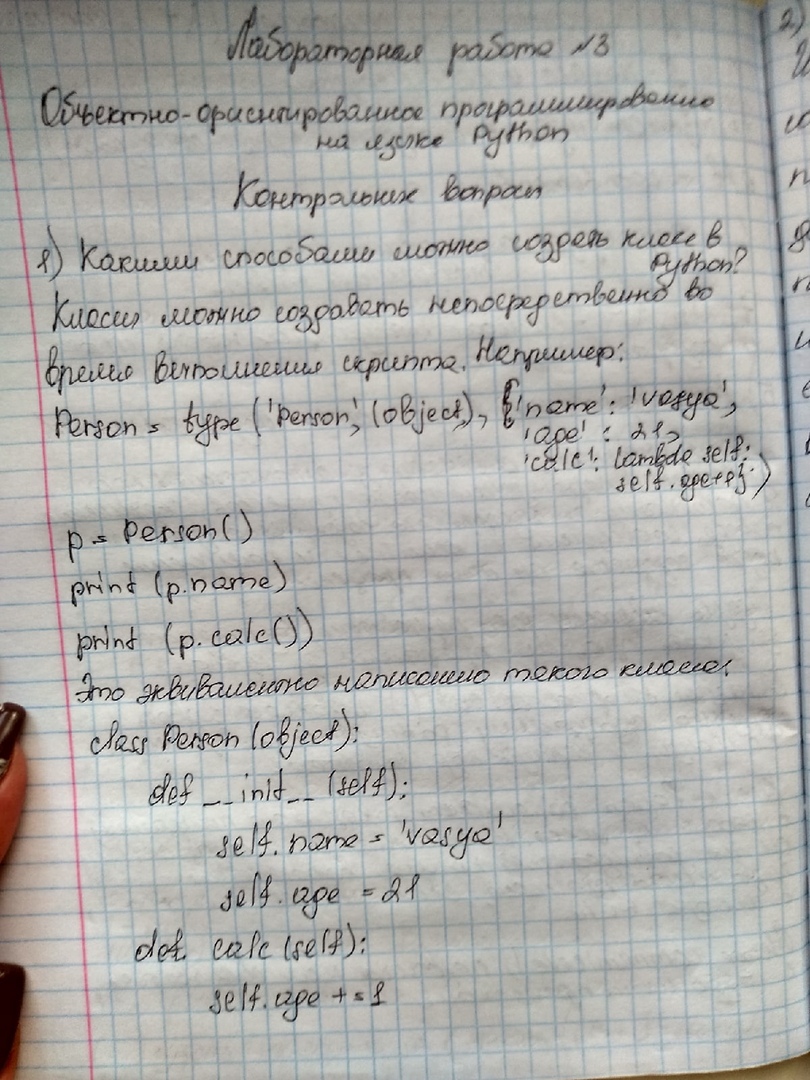 Лабораторная работа №3
Объектно-ориентированное программирование
на языке Python
Контрольные вопросы
1) Какими способами можно создать класс в
Python?
Классы можно создавать непосредственно во
время выполнения скрипта. Например:
Person = type ('Person', (object), {'name': 'vasya',
'age' : 21,
'calc': lambda self:
self.age+1})
p = Person()
print (p.name)
print (p.calc())
Это эквивалентно написанию такого класса:
class Person (object):
def __init__ (self):
self.name = 'vasya'
self.age = 21
def calc (self):
self.age += 1
2)